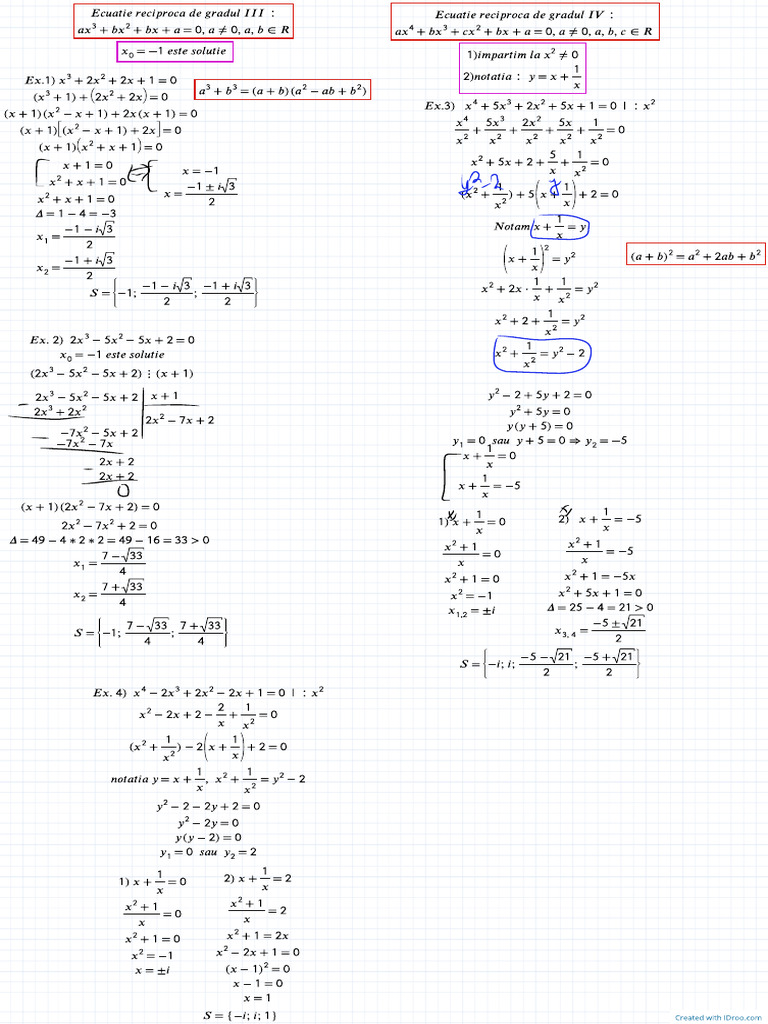 Ecuatie reciproca de gradul III :
ax³ + bx² + bx + a = 0, a ≠ 0, a, b ∈ R
x₀ = −1 este solutie
Ex.1) x³ + 2x² + 2x + 1 = 0
a³ + b³ = (a + b)(a² − ab + b²)
(x³ + 1) + (2x² + 2x) = 0
(x + 1)(x² − x + 1) + 2x(x + 1) = 0
(x + 1)[(x² − x + 1) + 2x] = 0
(x + 1)(x² + x + 1) = 0
[ x + 1 = 0 ⇔ [ x = −1
x² + x + 1 = 0 x = (−1 ± i√3)/2
x² + x + 1 = 0
Δ = 1 − 4 = −3
x₁ = (−1 − i√3)/2
x₂ = (−1 + i√3)/2
S = {−1; (−1 − i√3)/2; (−1 + i√3)/2}
Ex. 2) 2x³ − 5x² − 5x + 2 = 0
x₀ = −1 este solutie
(2x³ − 5x² − 5x + 2) ⋮ (x + 1)
2x³ − 5x² − 5x + 2 | x + 1
− 2x³ + 2x² | 2x² − 7x + 2
−7x² − 5x + 2
− −7x² − 7x
2x + 2
− 2x + 2
0
(x + 1)(2x² − 7x + 2) = 0
2x² − 7x² + 2 = 0
Δ = 49 − 4 * 2 * 2 = 49 − 16 = 33 > 0
x₁ = (7 − √33)/4
x₂ = (7 + √33)/4
S = {−1; (7 − √33)/4; (7 + √33)/4}
Ecuatie reciproca de gradul IV :
ax⁴ + bx³ + cx² + bx + a = 0, a ≠ 0, a, b, c ∈ R
1)impartim la x² ≠ 0
2)notatia : y = x + 1/x
Ex.3) x⁴ + 5x³ + 2x² + 5x + 1 = 0 | : x²
x⁴/x² + 5x³/x² + 2x²/x² + 5x/x² + 1/x² = 0
x² + 5x + 2 + 5/x + 1/x² = 0
y² − 2 y
(x² + 1/x²) + 5(x + 1/x) + 2 = 0
Notam x + 1/x = y
(x + 1/x)² = y²
(a + b)² = a² + 2ab + b²
x² + 2x · 1/x + 1/x² = y²
x² + 2 + 1/x² = y²
x² + 1/x² = y² − 2
y² − 2 + 5y + 2 = 0
y² + 5y = 0
y(y + 5) = 0
y₁ = 0 sau y + 5 = 0 ⇒ y₂ = −5
[ x + 1/x = 0
x + 1/x = −5
1) x + 1/x = 0 2) x + 1/x = −5
(x² + 1)/x = 0 (x² + 1)/x = −5
x² + 1 = 0 x² + 1 = −5x
x² = −1 x² + 5x + 1 = 0
x₁,₂ = ±i Δ = 25 − 4 = 21 > 0
x₃, ₄ = (−5 ± √21)/2
S = {−i; i; (−5 − √21)/2; (−5 + √21)/2}
Ex. 4) x⁴ − 2x³ + 2x² − 2x + 1 = 0 | : x²
x² − 2x + 2 − 2/x + 1/x² = 0
(x² + 1/x²) − 2(x + 1/x) + 2 = 0
notatia y = x + 1/x, x² + 1/x² = y² − 2
y² − 2 − 2y + 2 = 0
y² − 2y = 0
y(y − 2) = 0
y₁ = 0 sau y₂ = 2
1) x + 1/x = 0 2) x + 1/x = 2
(x² + 1)/x = 0 (x² + 1)/x = 2
x² + 1 = 0 x² + 1 = 2x
x² = −1 x² − 2x + 1 = 0
x = ±i (x − 1)² = 0
x − 1 = 0
x = 1
S = {−i; i; 1}
Created with IDroo.com